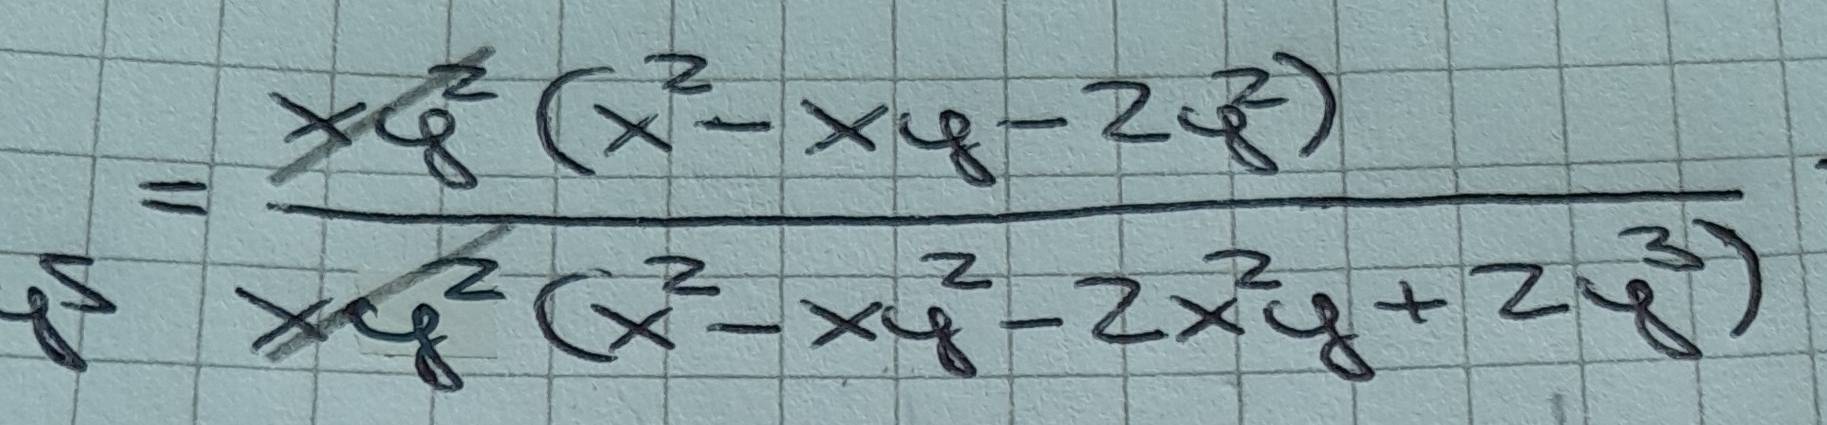 = xy²(x² - xy - 2y²)
y⁵ xy²(x² - xy² - 2x²y + 2y³)